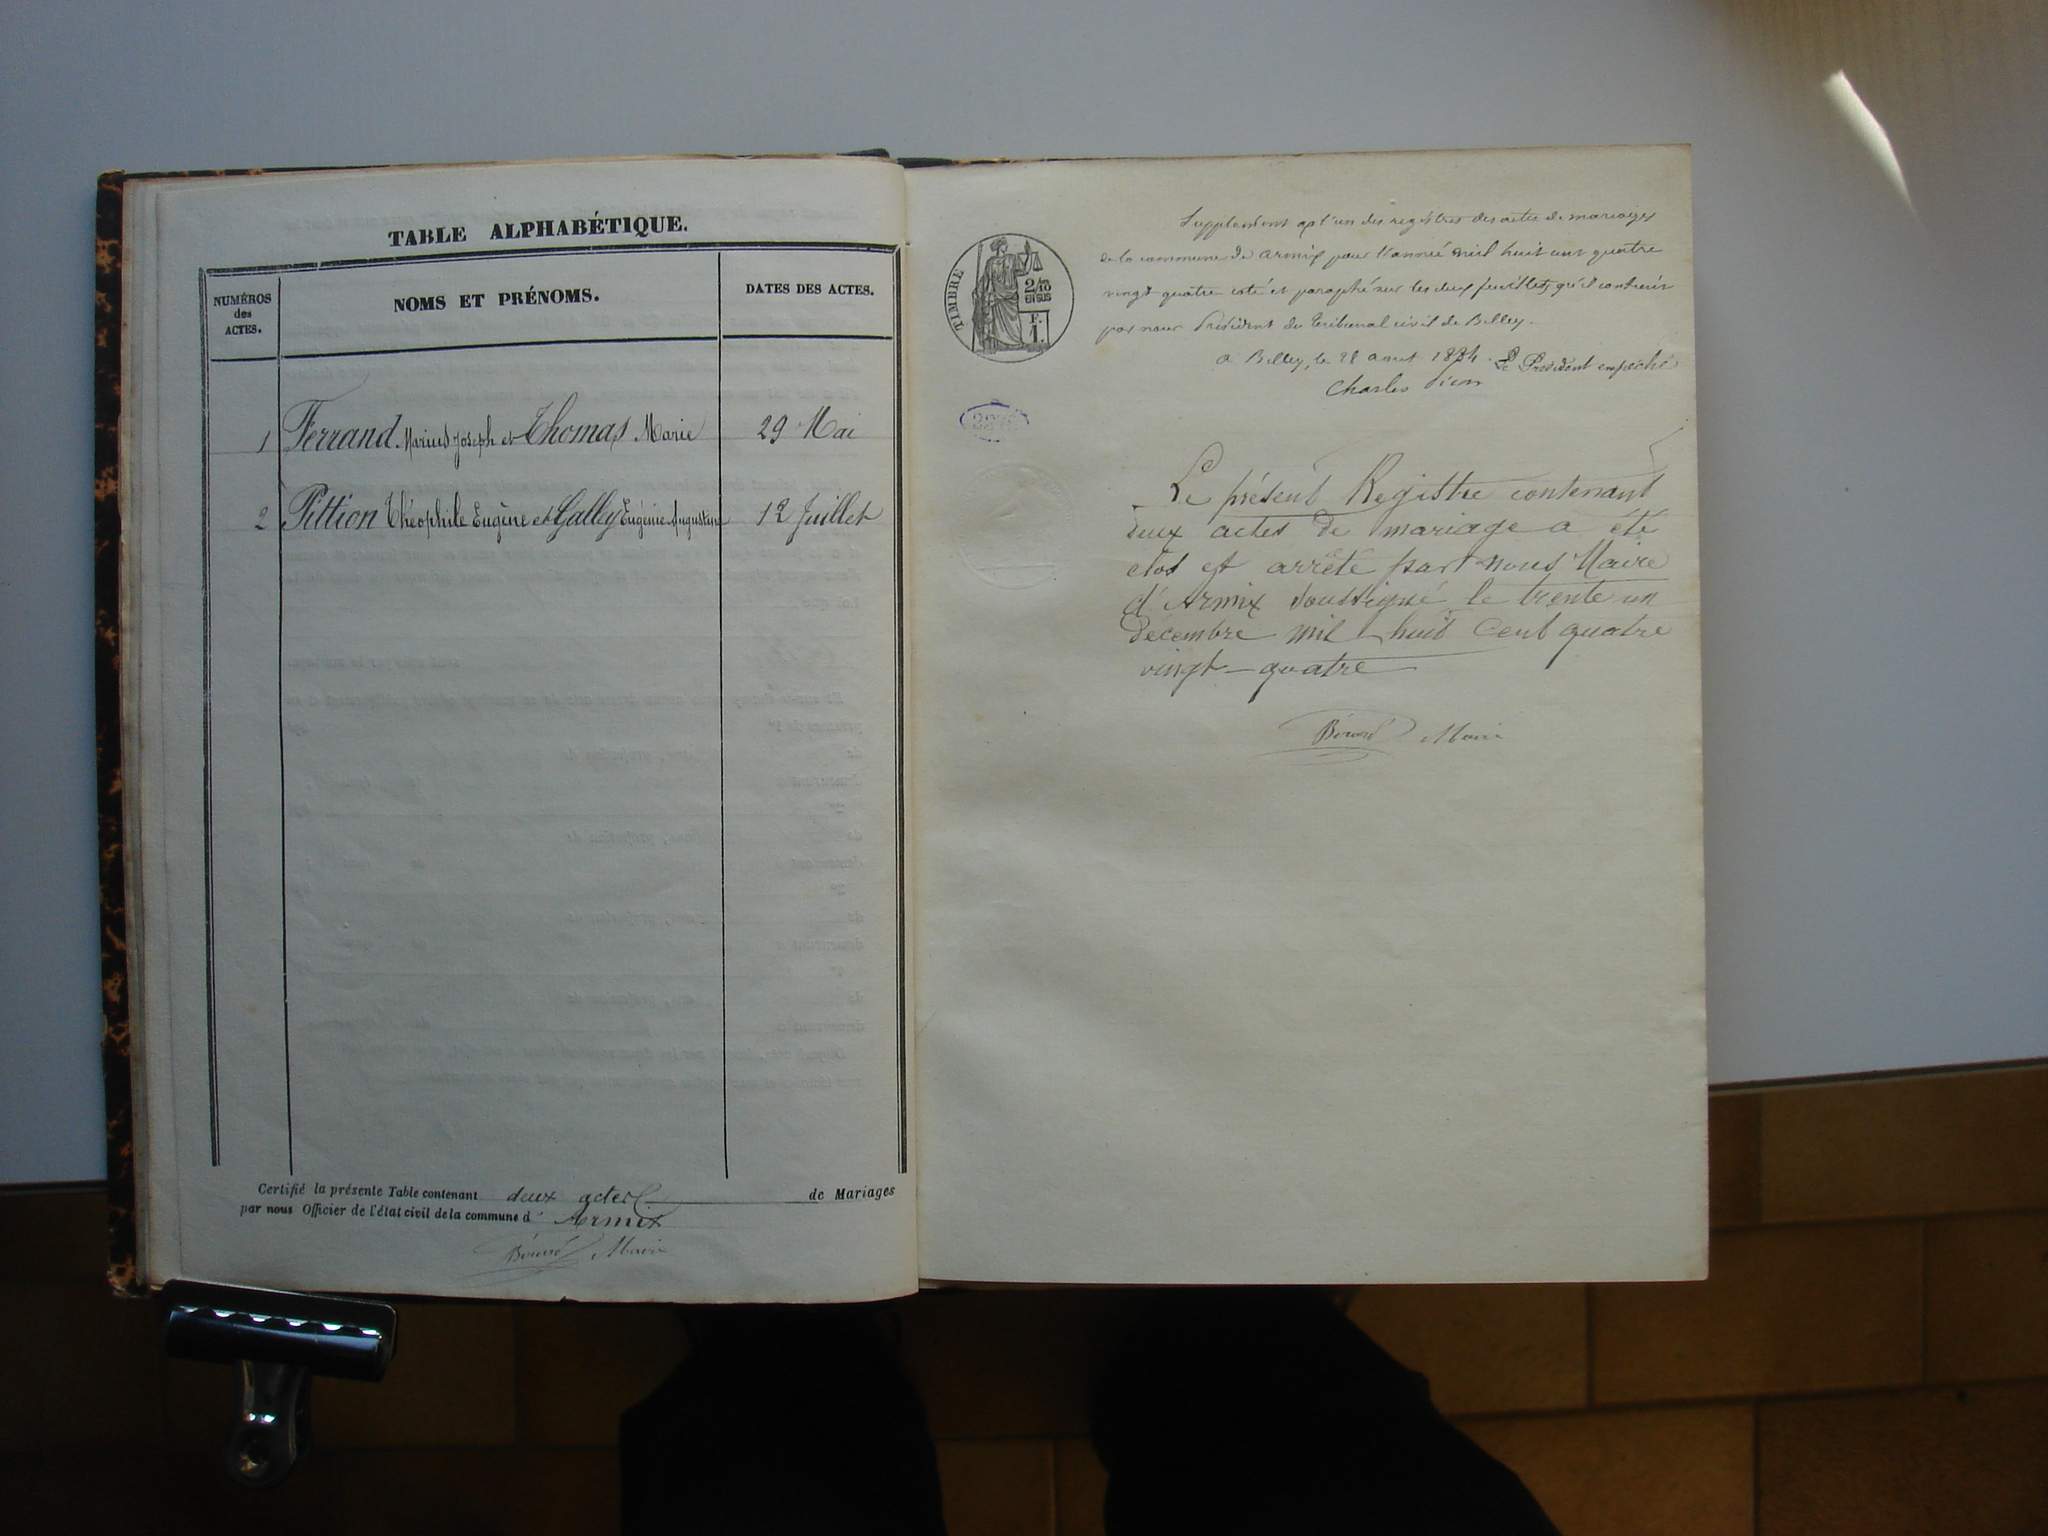 TABLE ALPHABÉTIQUE.
NUMÉROS
des
ACTES.
NOMS ET PRÉNOMS.
DATES DES ACTES.
1 Ferrand Marius Joseph et Thomas Marie 29 Mai
2 Pittion Théophile Eugène et Galley Eugénie Augustine 12 Juillet
Certifié la présente Table contenant deux actes de Mariages
par nous Officier de l'état civil de la commune d' Armix
Maire
TIMBRE
2/10
EN SUS
F.
1.
Supplément à l'un des registres des actes de mariages
de la commune de Armix pour l'année mil huit cent quatre
vingt quatre coté et paraphé sur les deux feuillets qu'il contient
par nous Président du Tribunal civil de Belley.
à Belley, le 28 aout 1884. Le Président empêché
Charles
Le présent Registre contenant
deux actes de mariage a été
clos et arrêté part nous Maire
d'Armix soussigné le trente un
décembre mil huit cent quatre
vingt-quatre
Maire